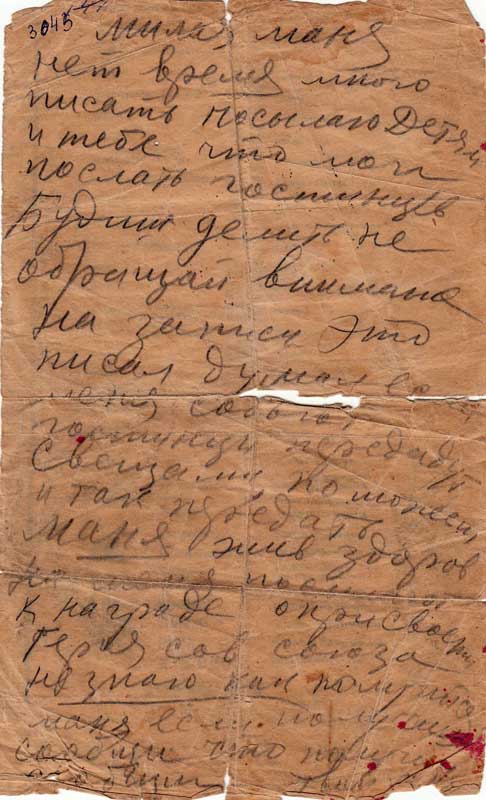 3045
Милая маня
нет время много
писать посылаю Детям
и тебе что мог
послать гостинцев
Будиш делить не
обращай внимана
на записи это
писал думал
меня собьют
гостинци передадут
Свещами
и так передать
Маня жив здоров
на меня
к награде оприсвоен
Героя сов союза
не знаю как получится
маня если получиш
сообщи что получ